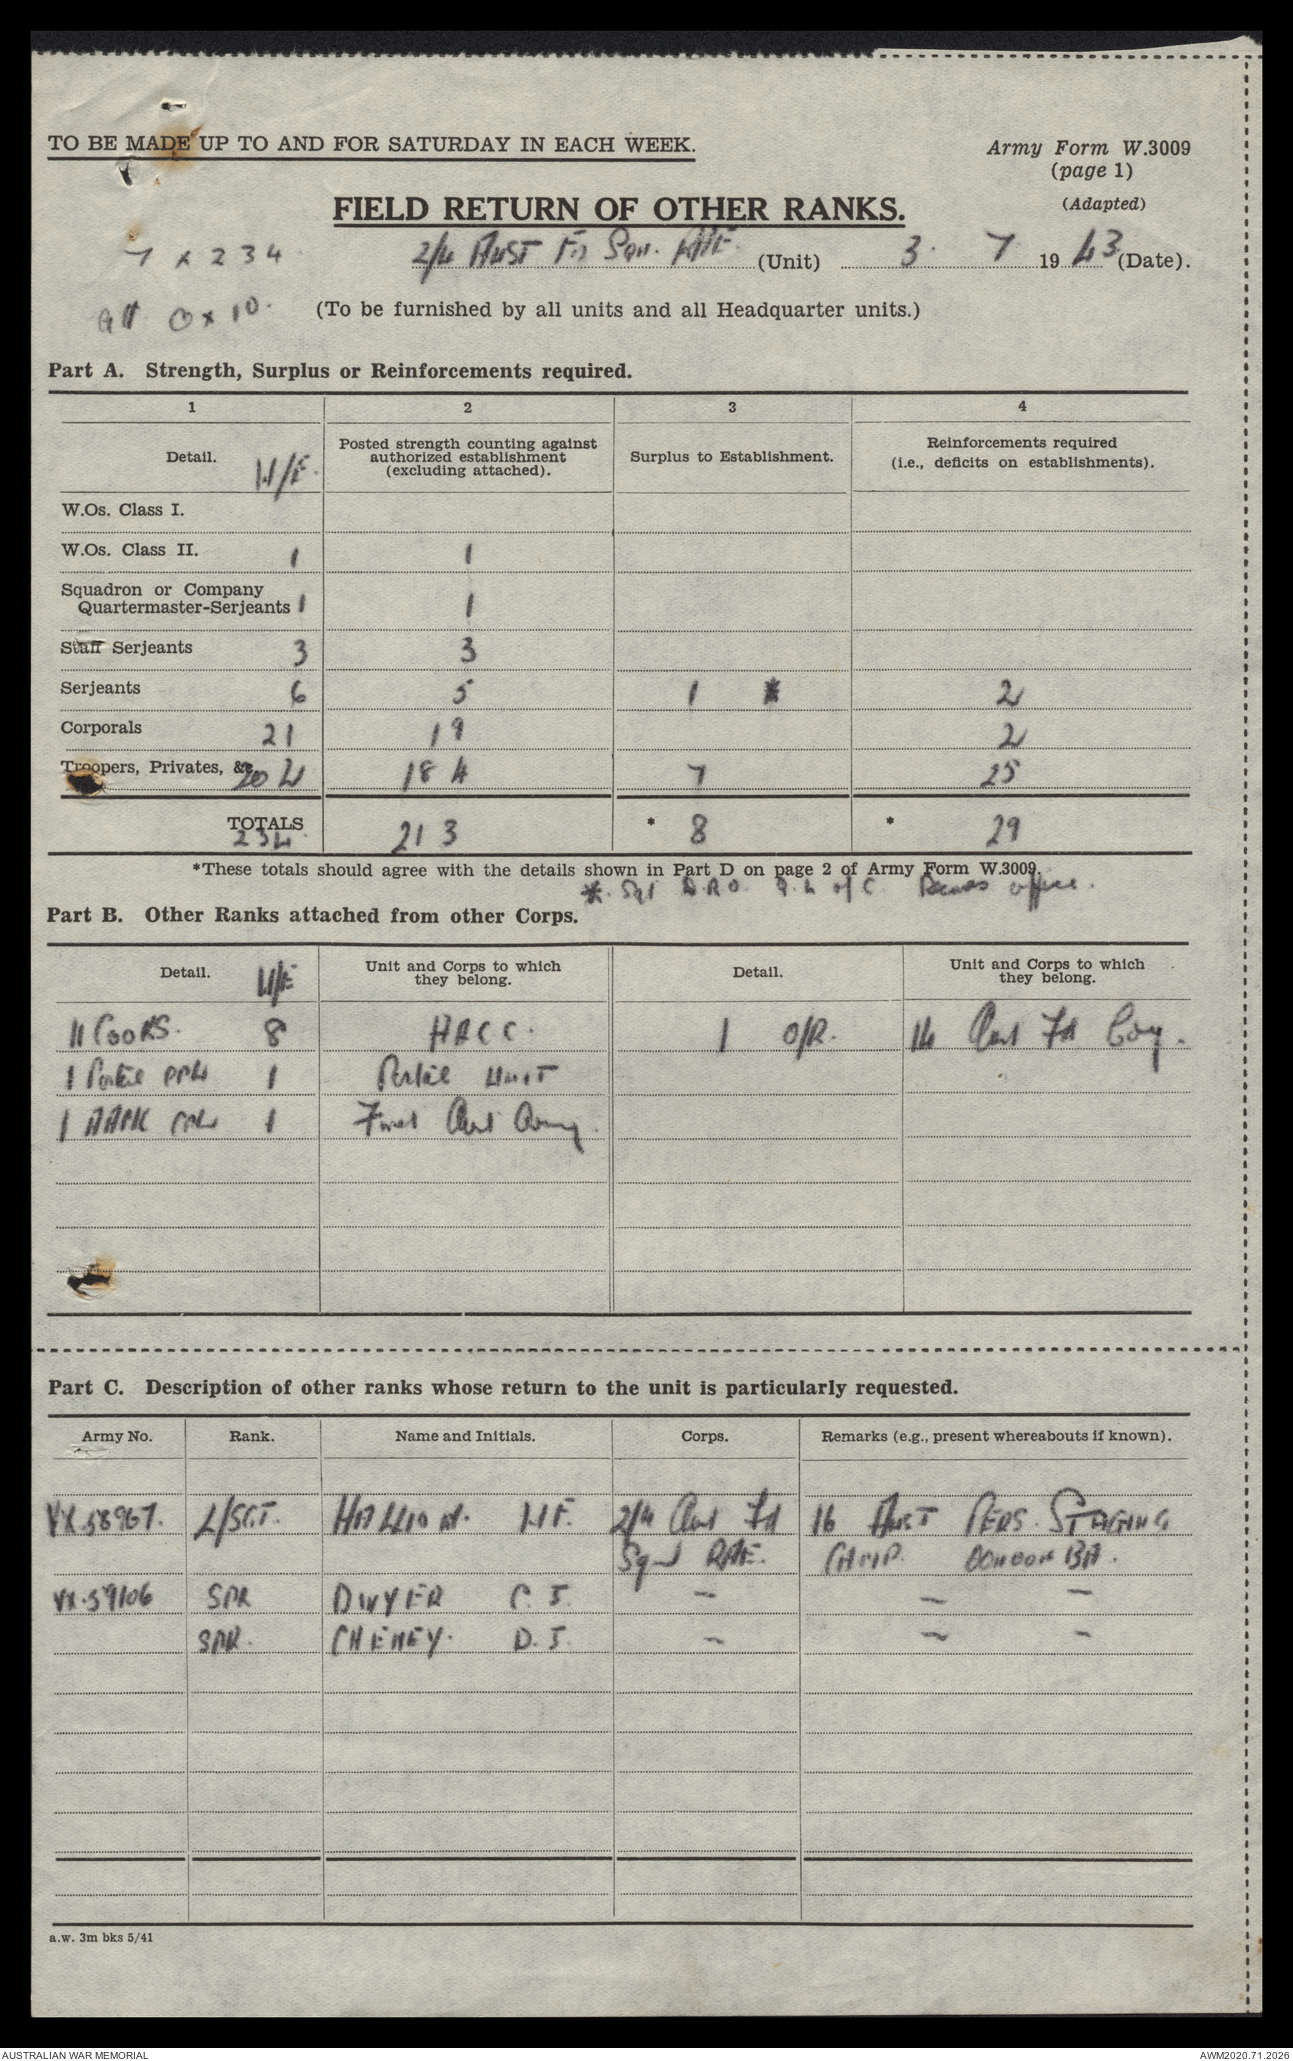 TO BE MADE UP TO AND FOR SATURDAY IN EACH WEEK.
Army Form W.3009
(page 1)
(Adapted)
FIELD RETURN OF OTHER RANKS.
7 x 234
2/4 AUST FD SQN. RAE. (Unit) 3. 7 1943 (Date).
0 x 10.
(To be furnished by all units and all Headquarter units.)
Part A. Strength, Surplus or Reinforcements required.
1 2 3 4
Detail. W/E. Posted strength counting against authorized establishment (excluding attached). Surplus to Establishment. Reinforcements required (i.e., deficits on establishments).
W.Os. Class I.
W.Os. Class II. 1 1
Squadron or Company
Quartermaster-Serjeants 1 1
Staff Serjeants 3 3
Serjeants 6 5 1 * 2
Corporals 21 19 2
Troopers, Privates, &c. 202 184 7 25
TOTALS 234 213 * 8 * 29
*These totals should agree with the details shown in Part D on page 2 of Army Form W.3009.
*. Sgt D.R.O. Q. L of C. Records office.
Part B. Other Ranks attached from other Corps.
Detail. W/E Unit and Corps to which they belong. Detail. Unit and Corps to which they belong.
11 COOKS. 8 AACC. 1 O/R. 14 Aust Fd Coy.
1 Postal 1 Postal UNIT
1 1 First Aust Army.
Part C. Description of other ranks whose return to the unit is particularly requested.
Army No. Rank. Name and Initials. Corps. Remarks (e.g., present whereabouts if known).
VX.58967. L/SGT. HALLION. W F. 2/4 Aust Fd 16 AUST PERS. STAGING
Sqn RAE. CAMP.
VX.59106 SPR DWYER C. J. — — —
SPR. CHENEY. D. J. — — —
a.w. 3m bks 5/41
AUSTRALIAN WAR MEMORIAL
AWM2020.71.2026